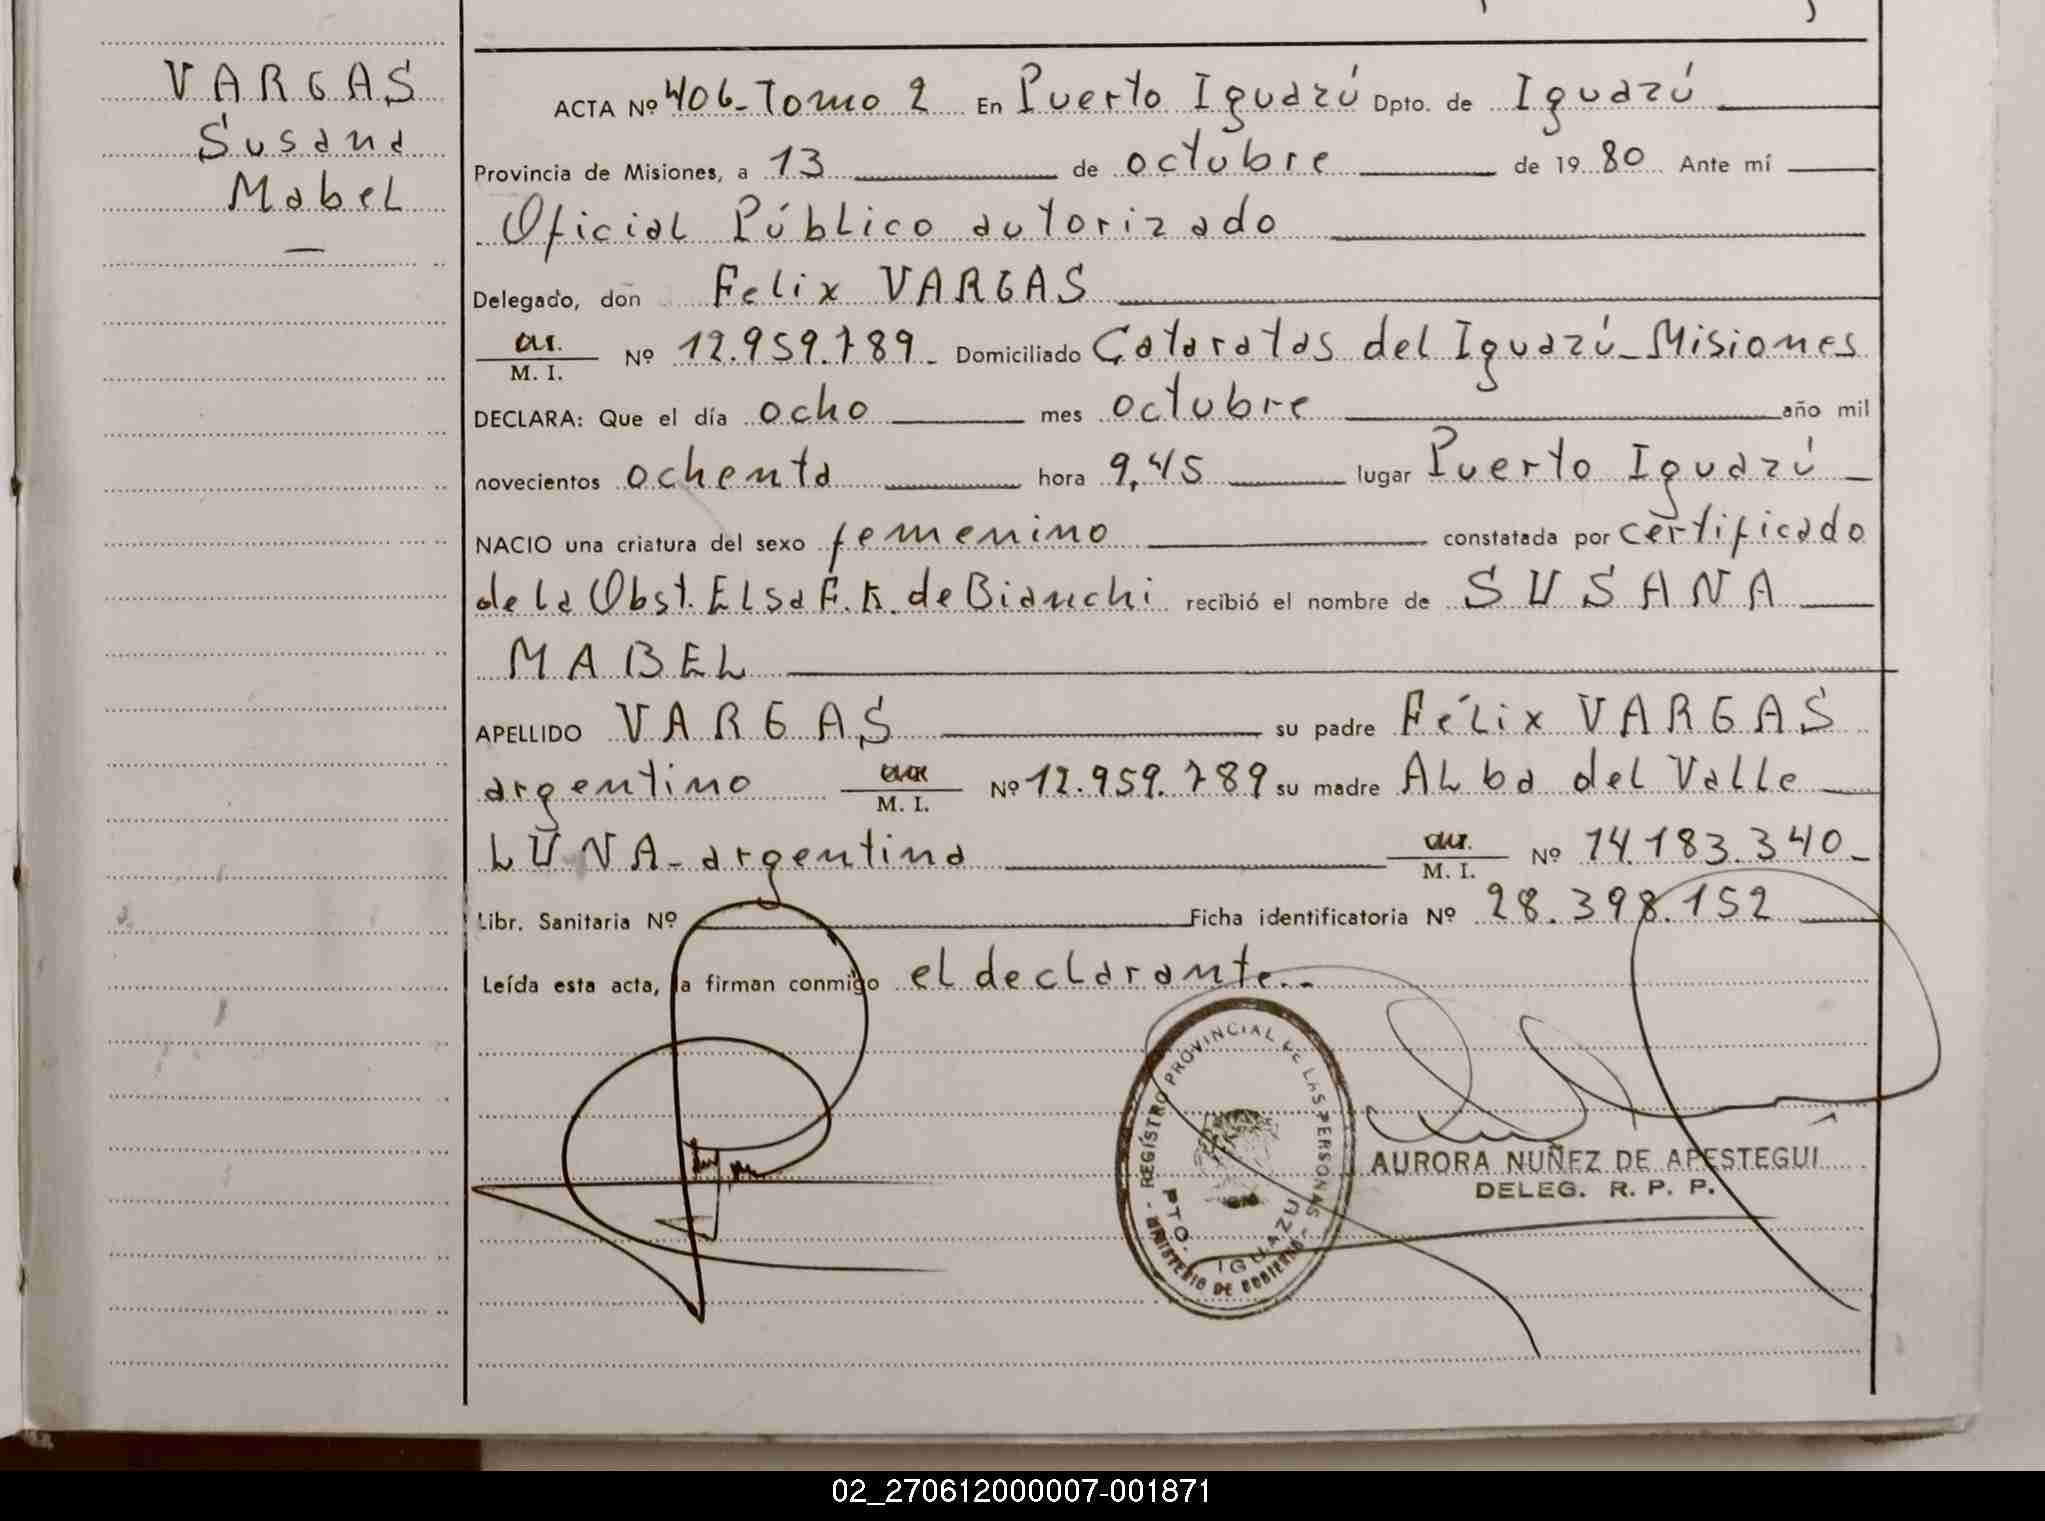 VARGAS
Susana
Mabel
ACTA Nº 406-Tomo 2 En Puerto Iguazú Dpto. de Iguazú
Provincia de Misiones, a 13 de octubre de 19 80 Ante mí
Oficial Público autorizado
Delegado, don Felix VARGAS
M. I. Nº 12.959.789- Domiciliado Cataratas del Iguazú-Misiones
DECLARA: Que el día ocho mes octubre año mil
novecientos ochenta hora 9,45 lugar Puerto Iguazú
NACIO una criatura del sexo femenino constatada por certificado
de la Obst. Elsa F. K. de Bianchi recibió el nombre de SUSANA
MABEL
APELLIDO VARGAS su padre Félix VARGAS
argentino M. I. Nº 12.959.789 su madre Alba del Valle
LUNA-argentina M. I. Nº 14.183.340-
Libr. Sanitaria Nº Ficha identificatoria Nº 28.398.152
Leída esta acta, la firman conmigo el declarante.-
REGISTRO PROVINCIAL DE LAS PERSONAS
PTO. IGUAZU
MINISTERIO DE GOBIERNO
AURORA NUÑEZ DE APESTEGUI
DELEG. R. P. P.
02_270612000007-001871